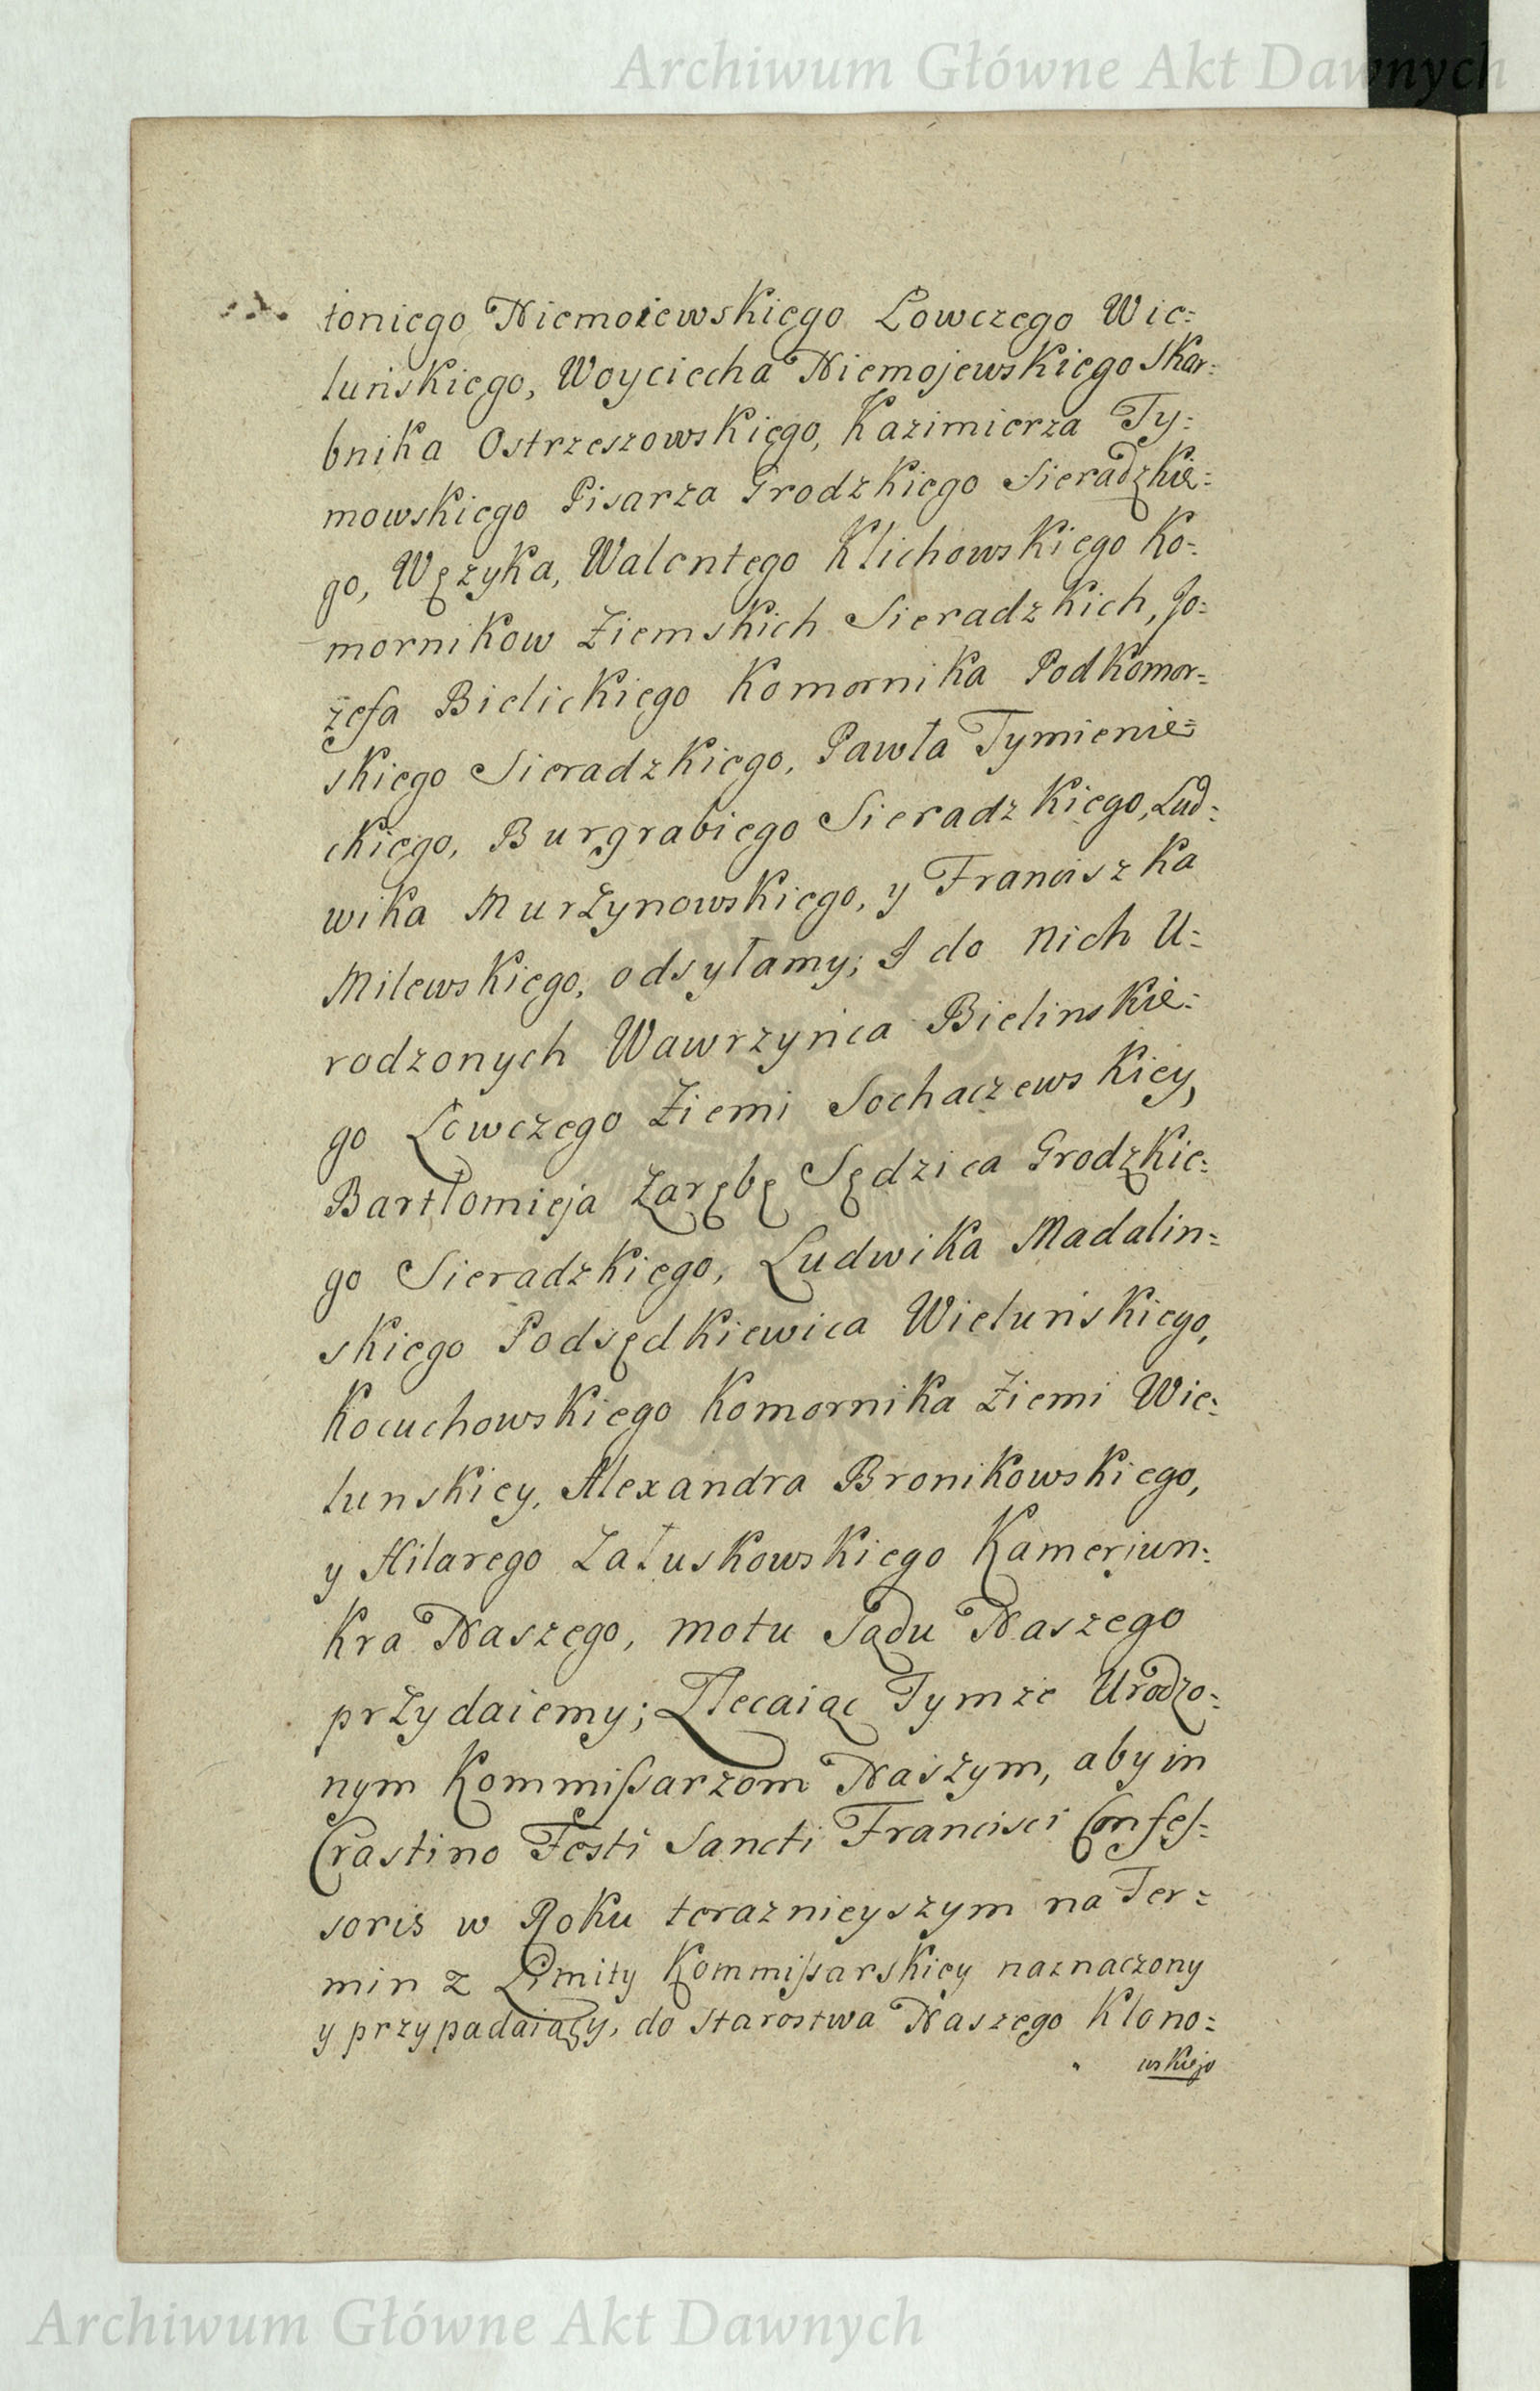 Archiwum Główne Akt Dawnych
toniego Niemoiewskiego Łowczego Wie:
luńskiego, Woyciecha Niemojewskiego Skar:
bnika Ostrzeszowskiego, Kazimierza Ty:
mowskiego Pisarza Grodzkiego Sieradzkie:
go, Wężyka, Walentego Klichowskiego Ko:
mornikow Ziemskich Sieradzkich, Jo:
zefa Bielickiego Komornika Podkomor:
skiego Sieradzkiego, Pawła Tymienie:
ckiego, Burgrabiego Sieradzkiego, Lud:
wika Murzynowskiego, y Franciszka
Milewskiego, odsyłamy; I do nich U:
rodzonych Wawrzyńca Bielinskie:
go Łowczego Ziemi Sochaczewskiey,
Bartłomieja Zarębę Sędzica Grodzkie:
go Sieradzkiego, Ludwika Madalin:
skiego Podsędkiewica Wieluńskiego,
Kocuchowskiego Komornika Ziemi Wie:
lunskiey, Alexandra Bronikowskiego,
y Hilarego Załuskowskiego Kamerjun:
kra Naszego, motu Sądu Naszego
przydaiemy; Zlecaiąc Tymże Urodzo:
nym Kommissarzom Naszym, aby in
Crastino Festi Sancti Francisci Confes:
soris w Roku teraznieyszym na Ter:
min z Limity Kommissarskiey naznaczony
y przypadaiący, do Starostwa Naszego Klono:
wskiego
Archiwum Główne Akt Dawnych